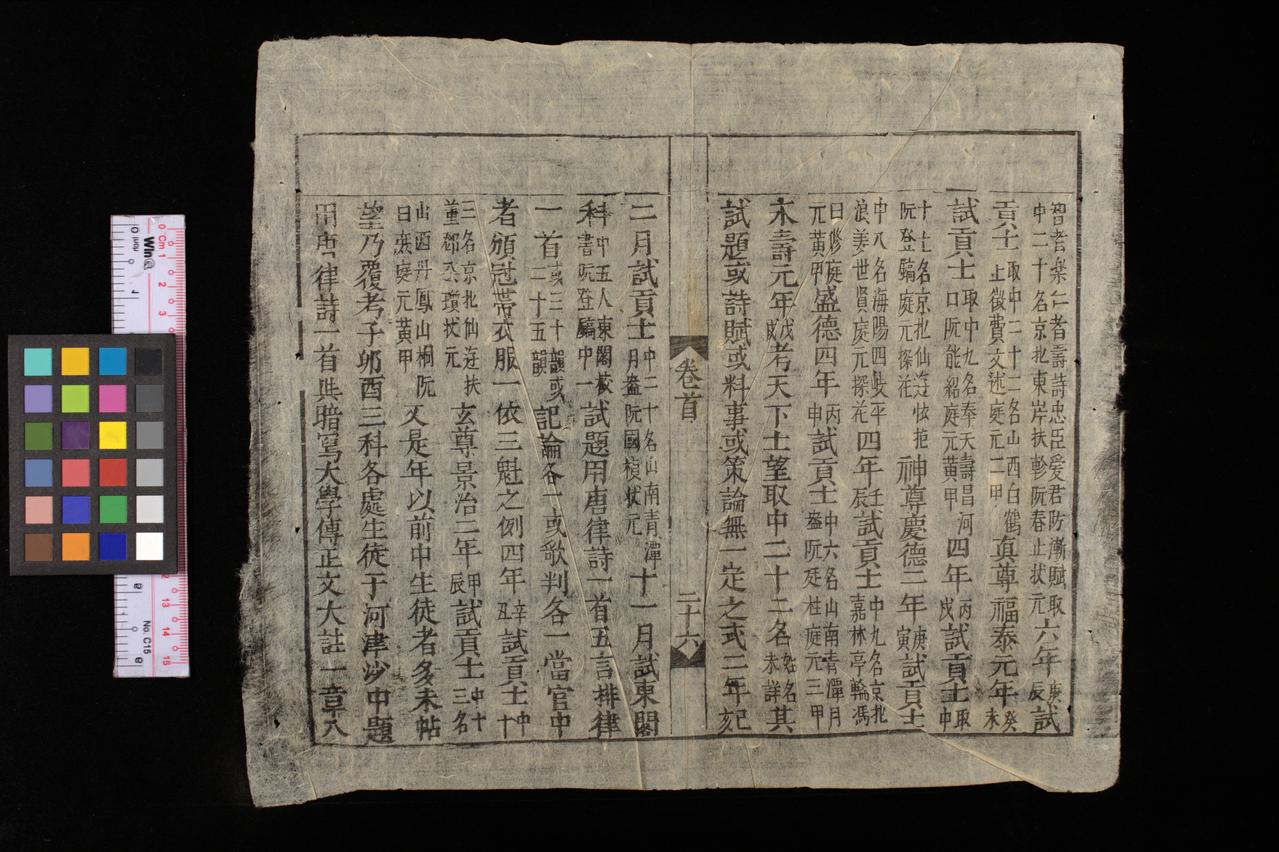 智者樂仁者壽詩忠臣愛君防漸賦取中二十名京北東岸扶軫阮春正狀元六年庚辰試
貢士取中二十二名山西白鶴止徵費文述庭元二甲真尊福泰元年癸未
試貢士取中九名奉天壽昌河口阮能紹庭元黄甲四年丙戌試貢士取中
十七名京北仙逰恢拖阮登鎬庭元探花神尊慶德二年庚寅試貢士
中八名海陽四岐平浪姜世賢庭元探花四年壬辰試貢士中九名京北嘉林亭輪馮
曰修庭元黄甲盛德四年丙申試貢士中六名山南青潭月盎阮廷柱庭元三甲
永壽元年戊戌考天下士望取中二十二名姓名未詳其
試題或詩賦或料事或策論無一定之式二年己亥
卷首
二十六
二月試貢士中二十名山南青潭月盎阮國楨狀元十一月試東閣
科中五人東閣校書阮登鎬中一試題用唐律詩一首五言排律
一首或三十韻或二十五韻記論各一或歌判各一當官中
者頒冠帶衣服一依三魁之例四年辛丑試貢士中十
三名京北仙逰扶董鄧公瓆狀元玄尊景治二年甲辰試貢士中十三名
山西丹鳳山桐阮曰庶庭元黄甲又是年以前中生徒者多未帖
望乃覆考子夘酉三科各處生徒于河津沙中題
用唐律詩一首與暗寫大學傳正文大註一章八